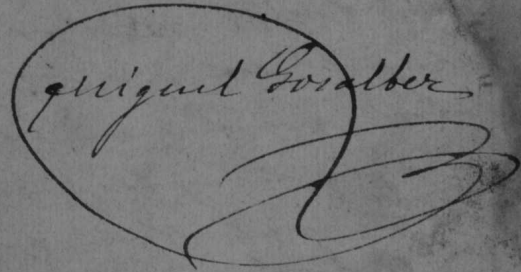 Miguel Gosalbez